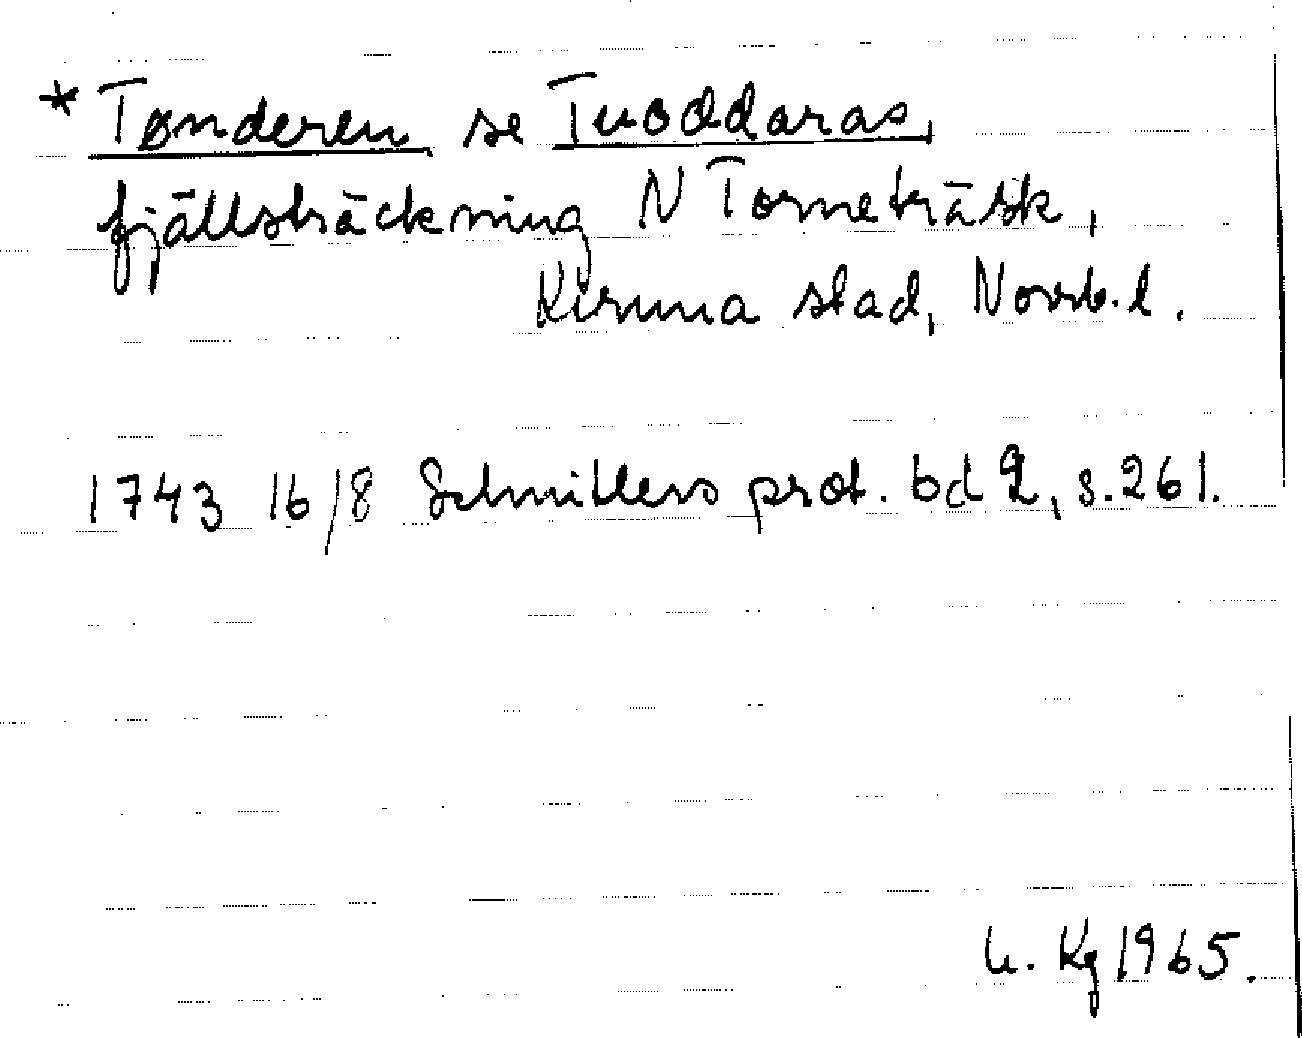 * Tønderen se Tuoddaras,
fjällsträckning N Torneträsk,
Kiruna stad, Norrb. l.
1743 16/8 Schnitlers prot. bd 2, s. 261.
U. Kg 1965.